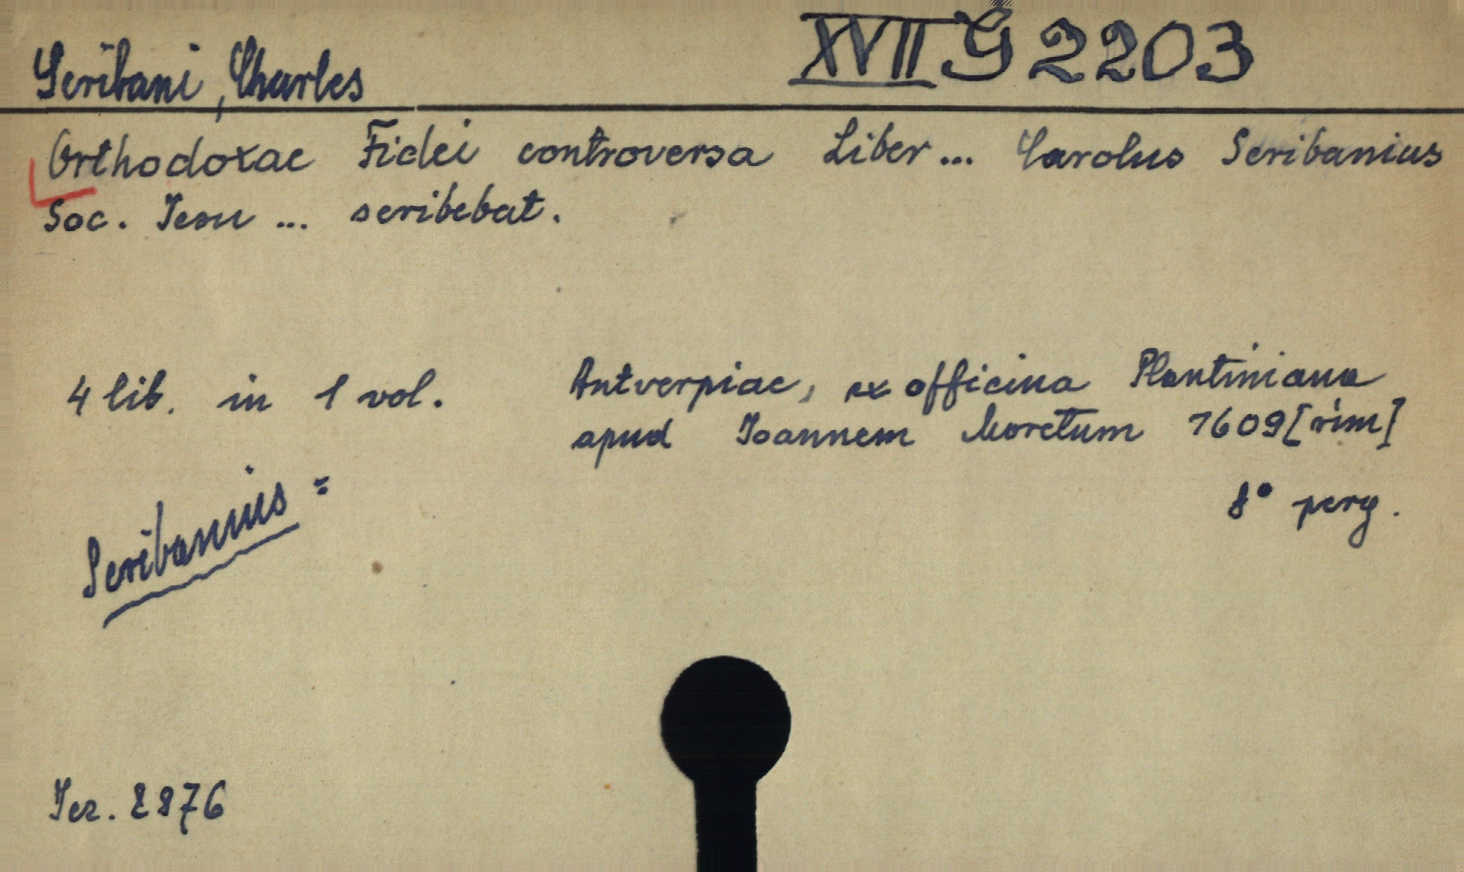 Scribani, Charles XVII G 2203
Orthodoxae Fidei controversa Liber... Carolus Scribanius
Soc. Iesu ... scribebat.
4 lib. in 1 vol. Antverpiae, ex officina Plantiniana
apud Ioannem Moretum 1609 [rím]
8° perg.
Scribanius =
Jez. 2876